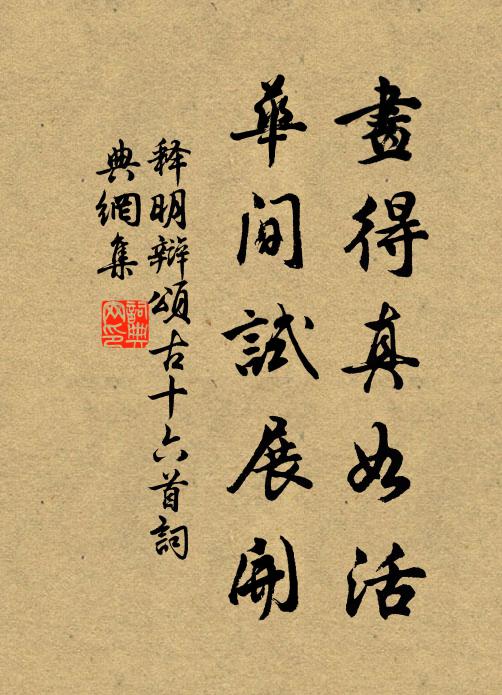 畫得真如活
華間試展開
釋明辯頌古十六首詞
典網集
詞典
网印